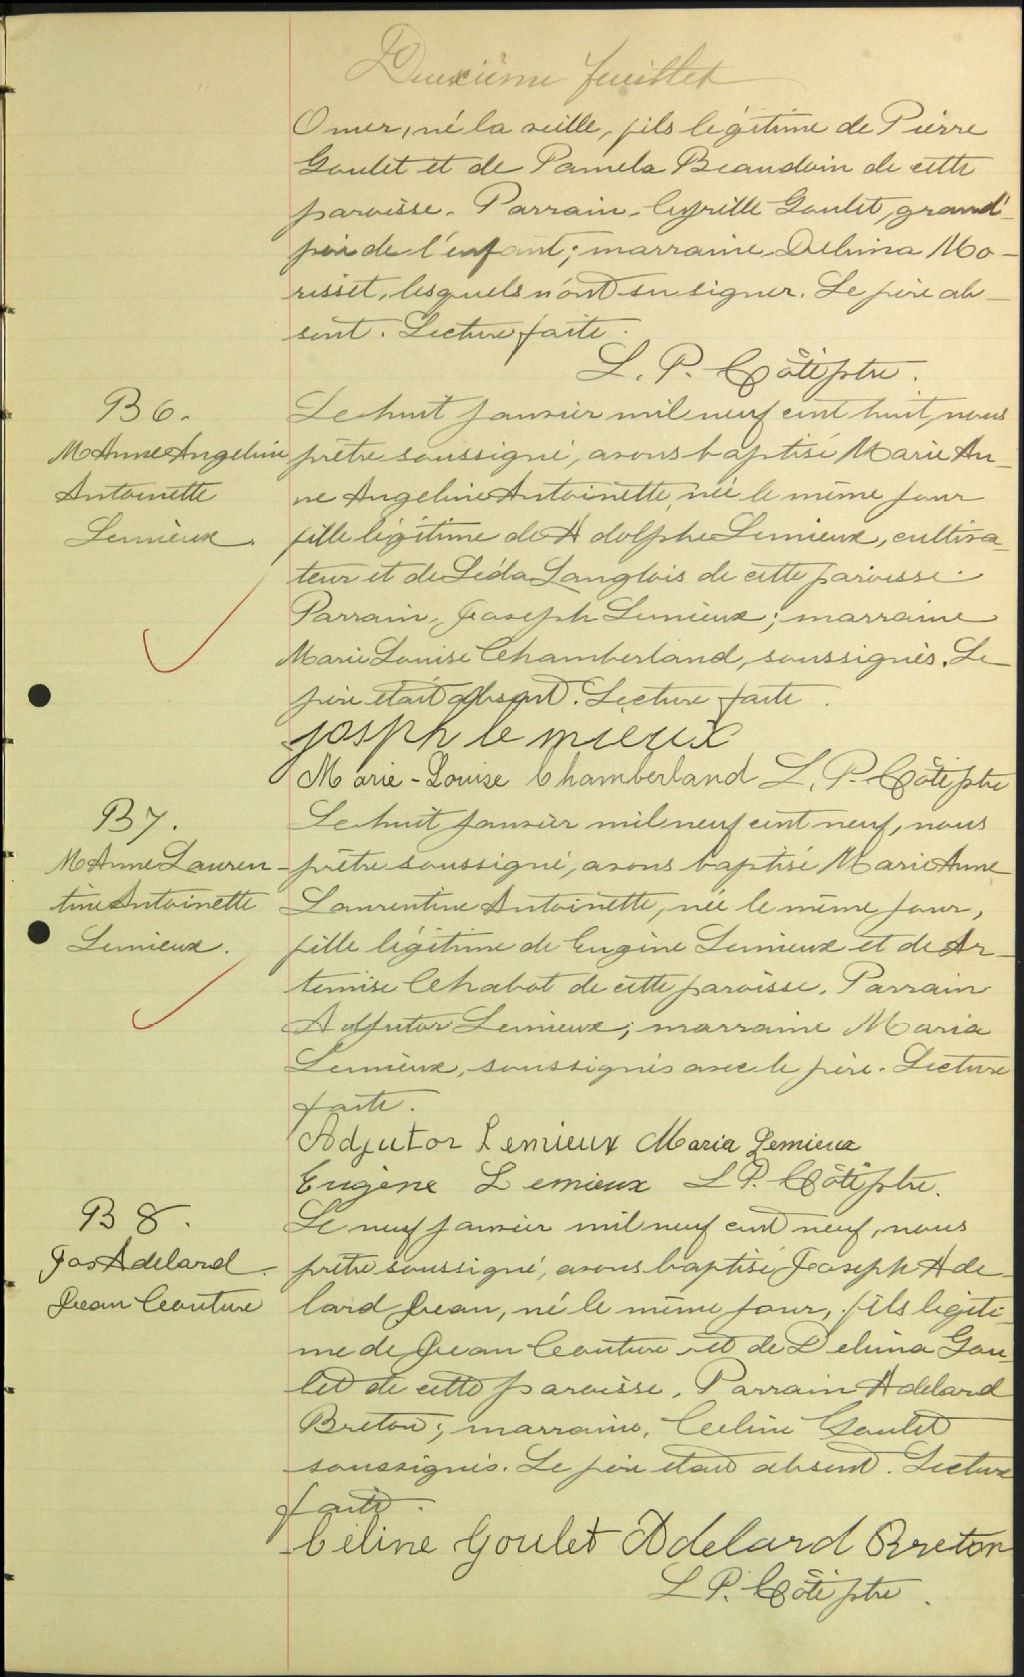 Deuxième feuillet
Omer, né la veille, fils légitime de Pierre
Goulet et de Pamela Beaudoin de cette
paroisse. Parrain, Cyrille Goulet, grand'-
père de l'enfant; marraine Delvina Mo-
risset, lesquels n'ont su signer. Le père ab-
sent. Lecture faite.
L. P. Côté ptre.
B 6.
M Anne Angeline
Antoinette
Lemieux.
Le huit janvier mil neuf cent huit, nous
prêtre soussigné, avons baptisé Marie An-
ne Angeline Antoinette, née le même jour
fille légitime de Adolphe Lemieux, cultiva-
teur et de Léda Langlois de cette paroisse.
Parrain, Joseph Lemieux; marraine
Marie Louise Chamberland, soussignés. Le
père était absent. Lecture faite.
josph le mieux
Marie-Louise Chamberland L. P. Côté ptre
B 7.
M Anne Lauren-
tine Antoinette
Lemieux.
Le huit janvier mil neuf cent neuf, nous
prêtre soussigné, avons baptisé Marie Anne
Laurentine Antoinette, née le même jour,
fille légitime de Eugène Lemieux et de Ar-
temise Chabot de cette paroisse. Parrain
Adjutor Lemieux; marraine Maria
Lemieux, soussignés avec le père. Lecture
faite.
Adjutor Lemieux Maria Lemieux
Eugène Lemieux L P. Côté ptre.
B 8.
Jos Adelard
Jean Couture
Le neuf janvier mil neuf cent neuf, nous
prêtre soussigné, avons baptisé Joseph Ade-
lard Jean, né le même jour, fils légiti-
me de Jean Couture et de Delvina Gou-
let de cette paroisse. Parrain Adelard
Breton; marraine, Celine Goulet
soussignés. Le père était absent. Lecture
faite.
Céline Goulet Adelard Breton
L P. Côté ptre.